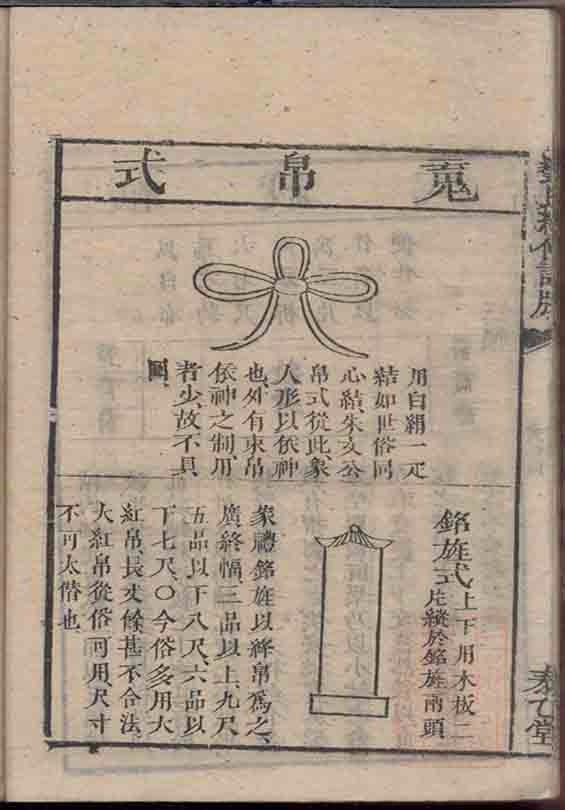 魂帛式
用白絹一疋
結如世俗同
心結、朱文公
帛式從此、象
人形以依神
也、外有束帛
依神之制、用
者少、故不具
圖、
銘旌式
上下用木板二
片縫於銘旌兩頭
家禮銘旌以絳帛爲之、
廣終幅、三品以上、九尺、
五品以下八尺、六品以
下七尺、〇今俗多用大
紅帛、長丈餘、甚不合法、
大紅帛從俗可用、尺寸
不可太僭也
泰乙堂